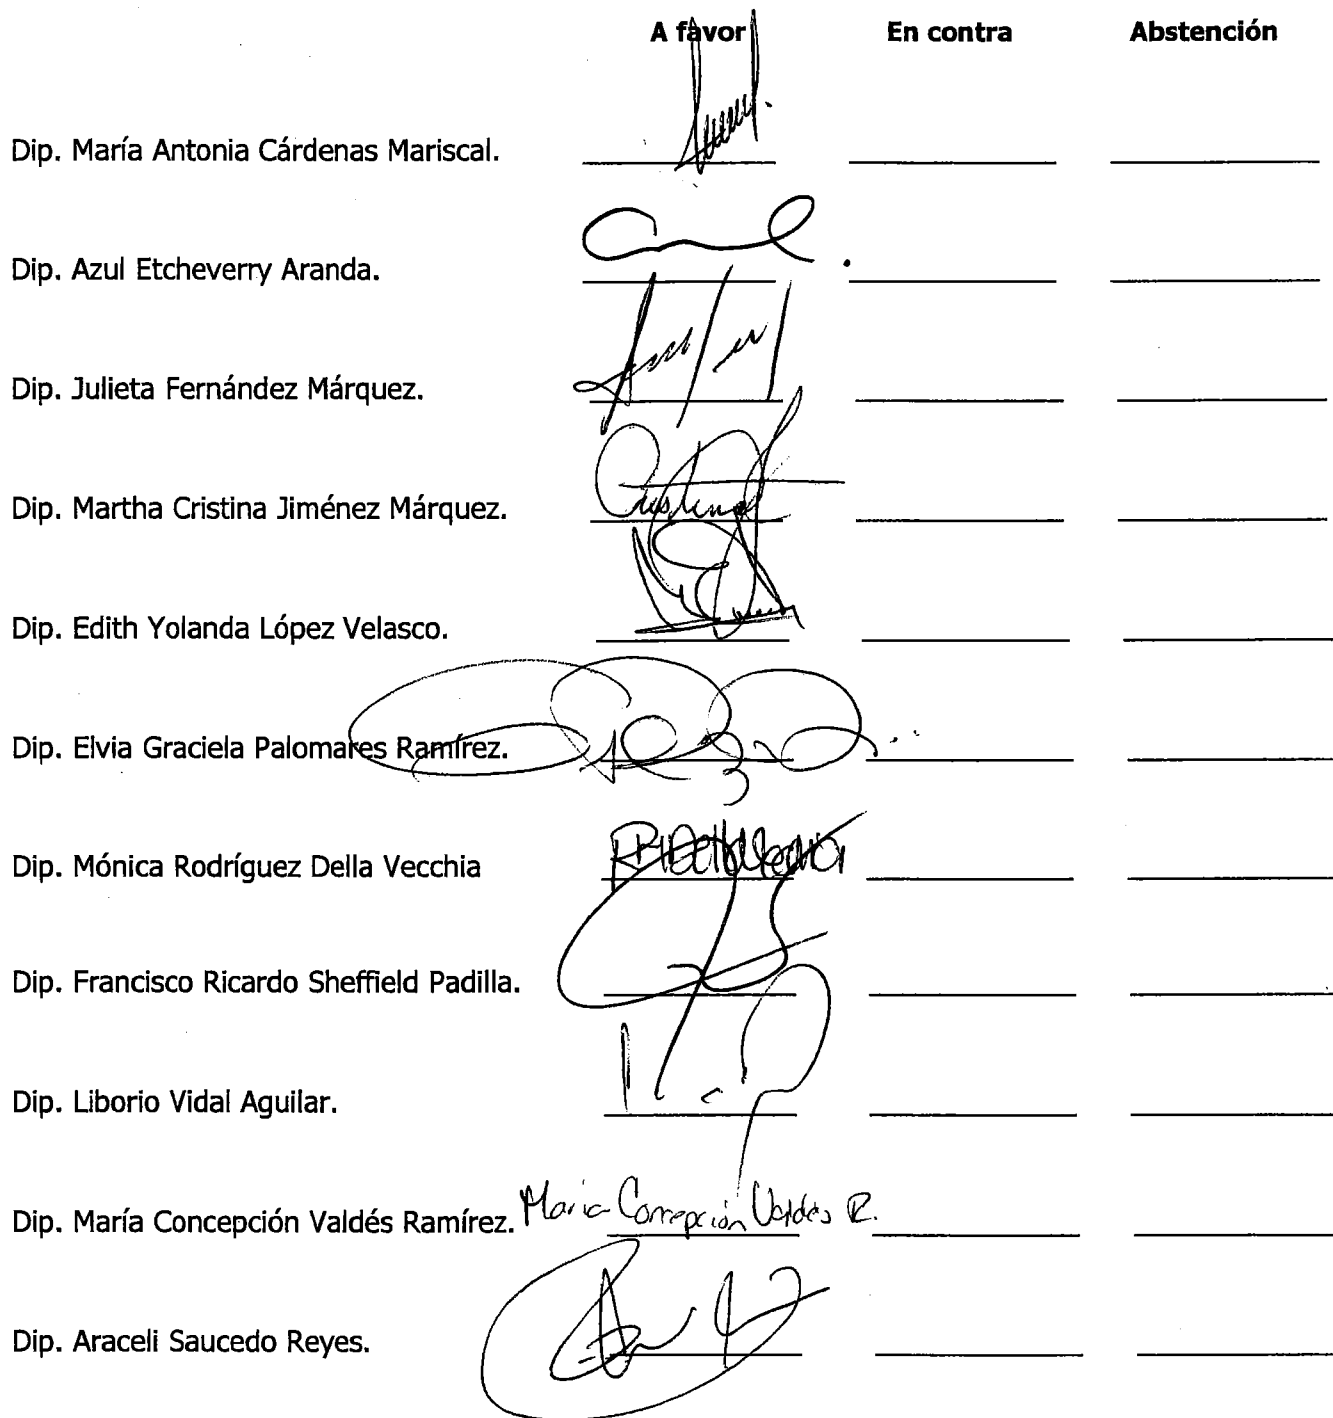 A favor En contra Abstención
Dip. María Antonia Cárdenas Mariscal.
Dip. Azul Etcheverry Aranda.
Dip. Julieta Fernández Márquez.
Dip. Martha Cristina Jiménez Márquez.
Dip. Edith Yolanda López Velasco.
Dip. Elvia Graciela Palomares Ramírez.
Dip. Mónica Rodríguez Della Vecchia
Dip. Francisco Ricardo Sheffield Padilla.
Dip. Liborio Vidal Aguilar.
Dip. María Concepción Valdés Ramírez. Maria Concepción Valdés R.
Dip. Araceli Saucedo Reyes.